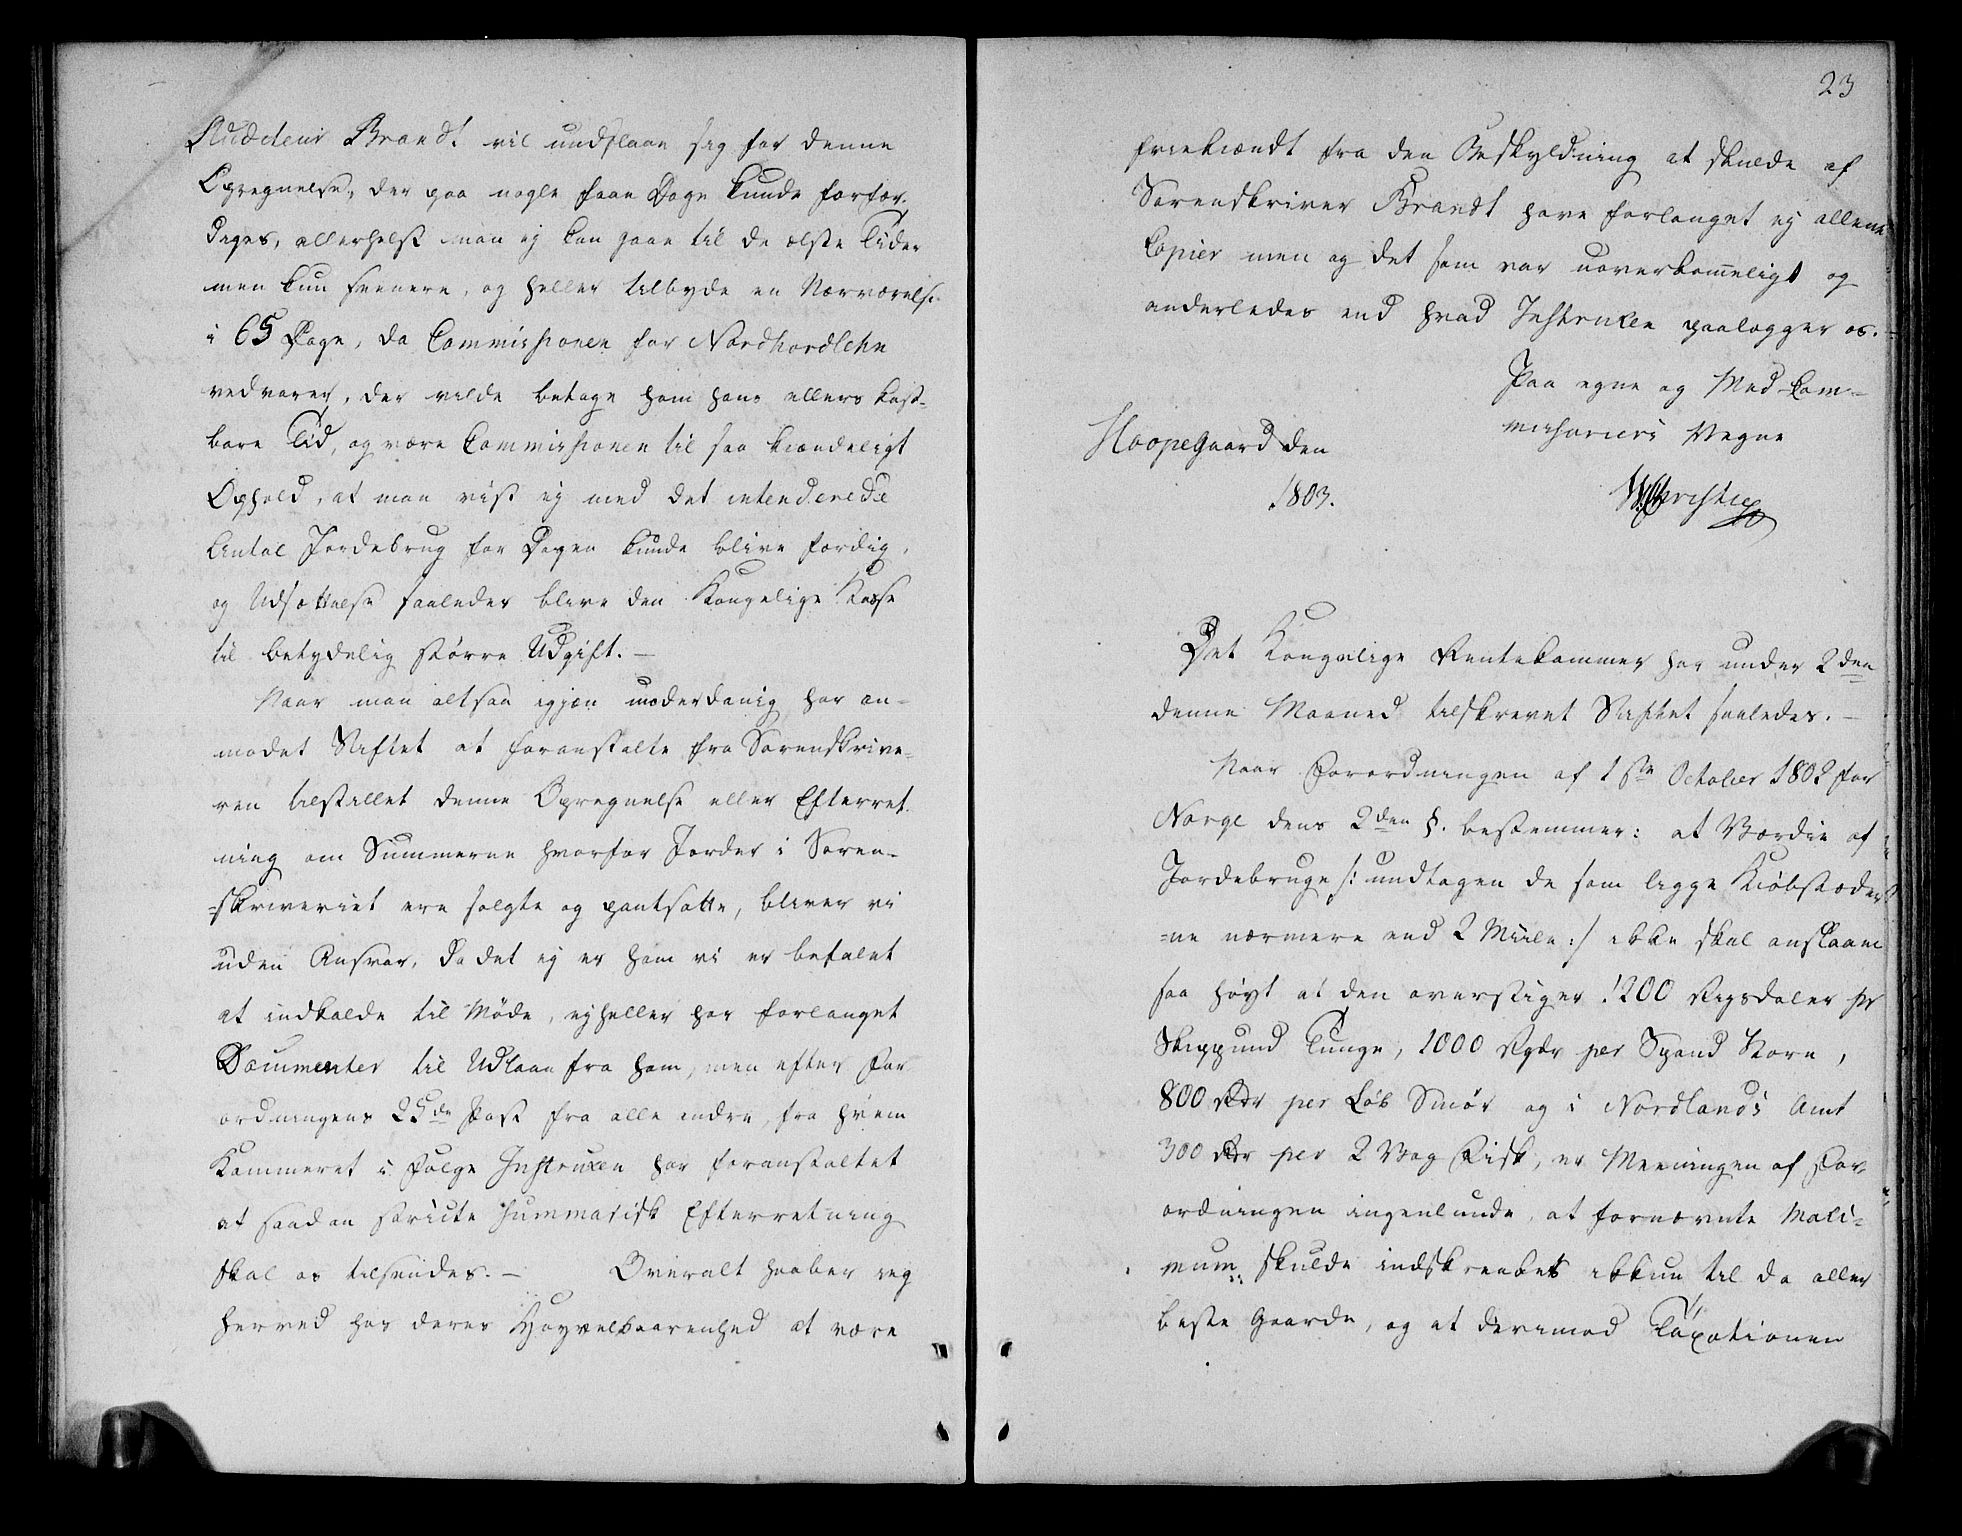 Auditeur Brandt vil undslaae sig for denne
Opregnelse, der paa nogle faae Dage kunde forfær-
diges, allerhelst man ej kan gaae til de ælste Tider
men kun seenere, og heller tilbyde en Nærværelse
i 65 Dage, da Commissionen for Nordhordlehn
vedvarer, der vilde betage ham hans ellers kost-
bare Tid, og være Commissionen til saa kiendeligt
Ophold, at man vist ej med det intenderede
Antal Jordebrug for Dagen kunde blive færdig,
og Udsættelse saaledes blive den Kongelige Kasse
til betydelig større Udgift. —
Naar man altsaa igjen underdanig har an-
modet Stiftet at foranstalte fra Sorenskrive-
ren tilstillet denne Opregnelse eller Efterret-
ning om Summerne hvorfor Jorder i Soren-
=skriveriet ere solgte og pantsatte, bliver vi
uden Ansvar, da det ej er ham vi er befalet
at indkalde til Møde, ejheller har forlanget
Documenter til Udlaan fra ham, men efter For-
ordningens 25de Post fra alle andre, fra hvem
Kammeret i Følge Instruxen har foranstaltet
at saadan stricte summarisk Efterretning
skal os tilsendes. — Overalt haaber jeg
herved hos deres Høyvelbaarenhed at være
23
friekiendt fra den Beskyldning at skulde af
Sorenskriver Brandt have forlanget ej allene
Copier men og det som var uoverkom̅eligt og
anderledes end hvad Instruxen paalægger os. —
Paa egne og Med-Com-
missariers Vegne
Hoopegaard den
1803.
W Christie
Det Kongelige Rentekammer har under 2den
denne Maaned tilskrevet Stiftet saaledes. —
Naar Forordningen af 1ste October 1802 for
Norge dens 2den §. bestemmer: at Værdie af
Jordebruge /: undtagen de som ligge Kiøbstæder
=ne nærmere end 2 Miile :/ ikke skal anslaaes
saa høyt at den overstiger 1200 Rigsdaler pr
Skippund Tunge, 1000 Rgdr per Spand Korn,
800 Rdr per Løb Smør og i Nordlands Amt
300 Rdr per 2 Vog Fisk, er Meeningen af For-
ordningen ingenlunde, at fornævnte Maxi-
mum skulde indskrænkes ikkun til de aller
beste Gaarde, og at derimod Taxationen